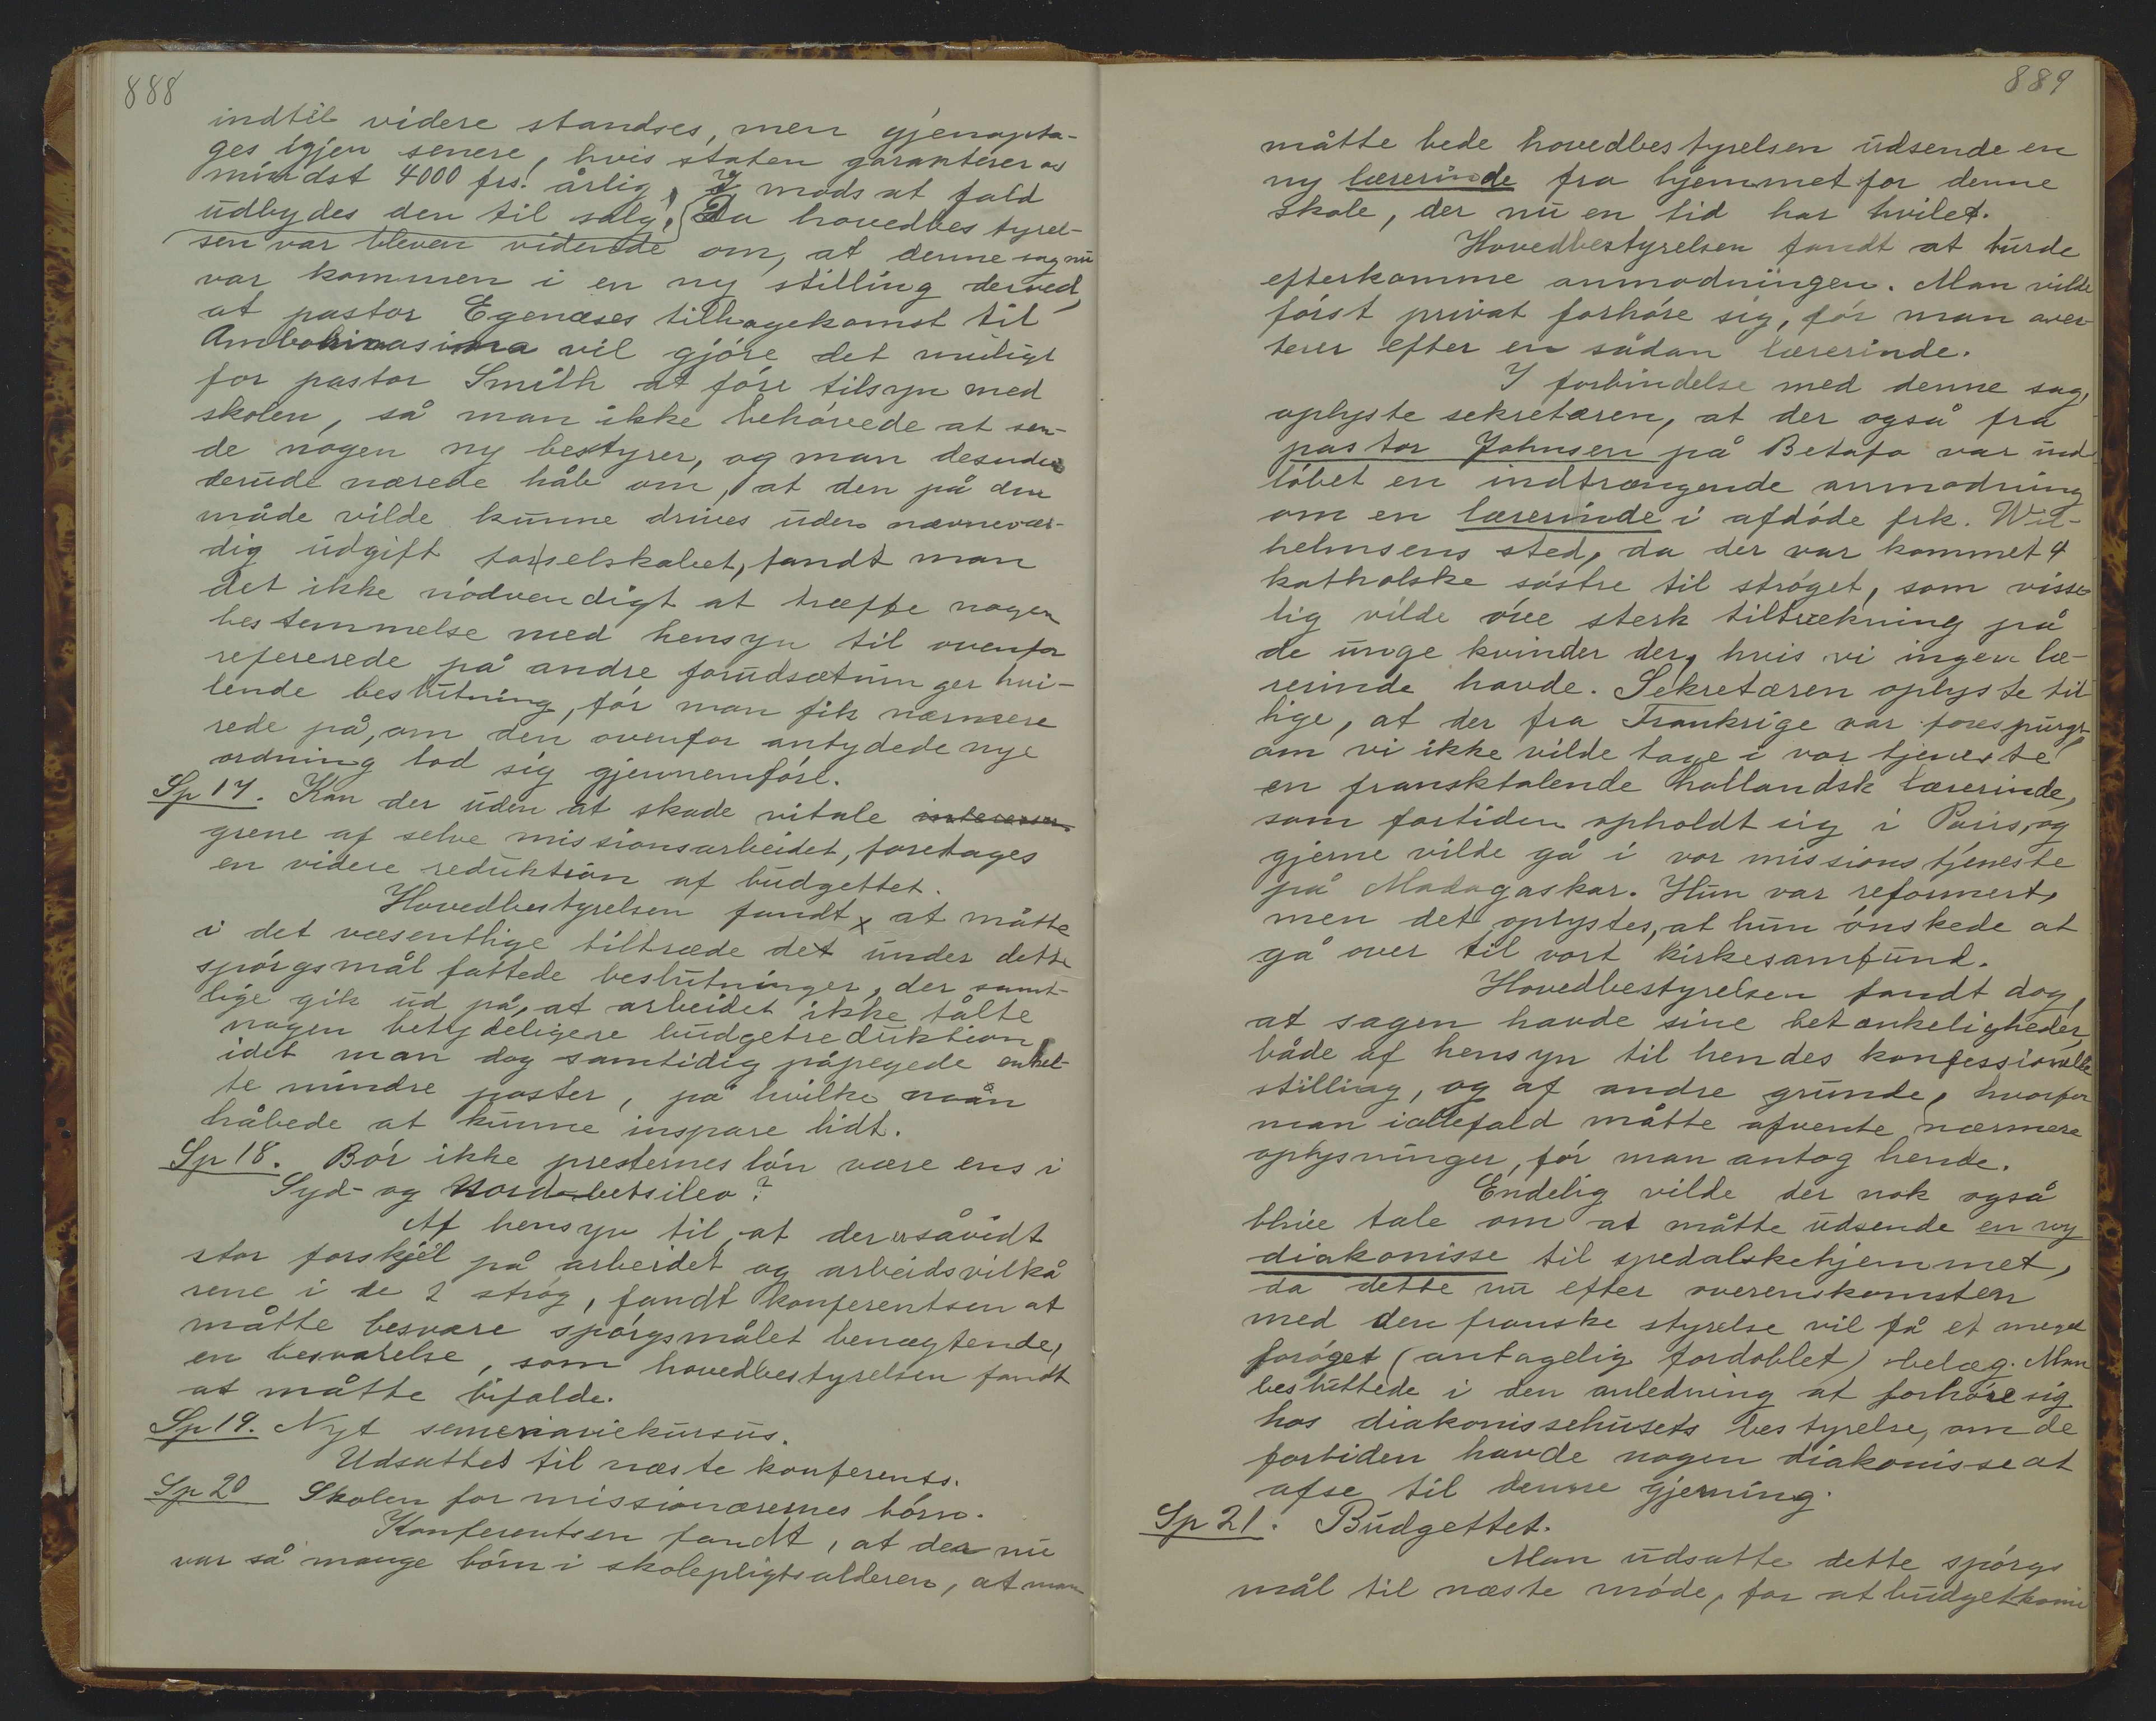 888
indtil videre standses, men gjenopta-
ges igjen senere, hvis staten garanterer os
mindst 4000 frs. årlig. I modsat fald
udbydes den til salg. Da hovedbestyrel-
sen var bleven vidende om, at denne sag nu
var kommen i en ny stilling derved,
at pastor Egenæses tilbagekomst til
Ambohimasina vil gjöre det muligt
for pastor Smith at före tilsyn med
skolen, så man ikke behövede at sen-
de nogen ny bestyrer, og man desuden
derude nærede håb om, at den på den
måde vilde kunne drives uden nævnevær-
dig udgift for selskabet, fandt man
det ikke nödvendigt at træffe nogen
bestemmelse med hensyn til ovenfor
refererede på andre forudsætninger hvi-
lende beslutning, för man fik nærmere
rede på, om den ovenfor antydede nye
ordning lod sig gjennemföre.
Sp 17. Kan der uden at skade vitale interesser
grene af selve missionsarbeidet, foretages
en videre reduktion af budgettet.
Hovedbestyrelsen fandt x at måtte
i det væsentlige tiltræde det under dette
spörgsmål fattede beslutninger, der samt-
lige gik ud på, at arbeidet ikke tålte
nogen betydeligere budgetreduktion,
idet man dog samtidig påpegede enkel-
te mindre poster, på hvilke man
håbede at kunne inspare lidt.
Sp 18. Bör ikke presternes lön være ens i
Syd- og Nord-betsileo?
Af hensyn til, at der er såvidt
stor forskjel på arbeidet og arbeidsvilkå
rene i de 2 strög, fandt konferentsen at
måtte besvare spörgsmålet benægtende,
en besvarelse, som hovedbestyrelsen fandt
at måtte bifalde.
Sp 19. Nyt semenariekursus.
Udsattes til næste konferents.
Sp 20 Skolen for missionærernes börn.
Konferentsen fandt, at der nu
var så mange börn i skolepligtsalderen, at man
889
måtte bede hovedbestyrelsen udsende en
ny lærerinde fra hjemmet for denne
skole, der nu en tid har hvilet.
Hovedbestyrelsen fandt at burde
efterkomme anmodningen. Man vilde
först privat forhöre sig, för man aver-
terer efter en sådan lærerinde.
I forbindelse med denne sag,
oplyste sekretæren, at der også fra
pastor Johnsen på Betafo var ind
löbet en indtrængende anmodning
om en lærerinde i afdöde frk. Wil-
helmsens sted, da der var kommet 4
katholske söstre til ströget, som visse
lig vilde öve sterk tiltrækning på
de unge kvinder der, hvis vi ingen læ-
rerinde havde. Sekretæren oplyste til
lige, at der fra Frankrige var forespurgt,
om vi ikke vilde tage i vor tjeneste
en fransktalende hollandsk lærerinde,
som fortiden opholdt sig i Paris, og
gjerne vilde gå i vor missionstjeneste
på Madagaskar. Hun var reformert,
men det oplystes, at hun önskede at
gå over til vort kirkesamfund.
Hovedbestyrelsen fandt dog,
at sagen havde sine betænkeligheder,
både af hensyn til hendes konfessionelle
stilling, og af andre grunde, hvorfor
man iallefald måtte afvente nærmere
oplysninger, för man antog hende.
Endelig vilde der nok også
blive tale om at måtte udsende en ny
diakonisse til spedalskehjemmet,
da dette nu efter overenskomsten
med den franske styrelse vil få et meget
foröget (antagelig fordoblet) belæg. Man
besluttede i den anledning at forhöre sig
hos diakonissehusets bestyrelse, om de
fortiden havde nogen diakonisse at
afse til denne gjerning.
Sp 21. Budgettet.
Man udsatte dette spörgs
mål til næste möde, for at budgetkomi